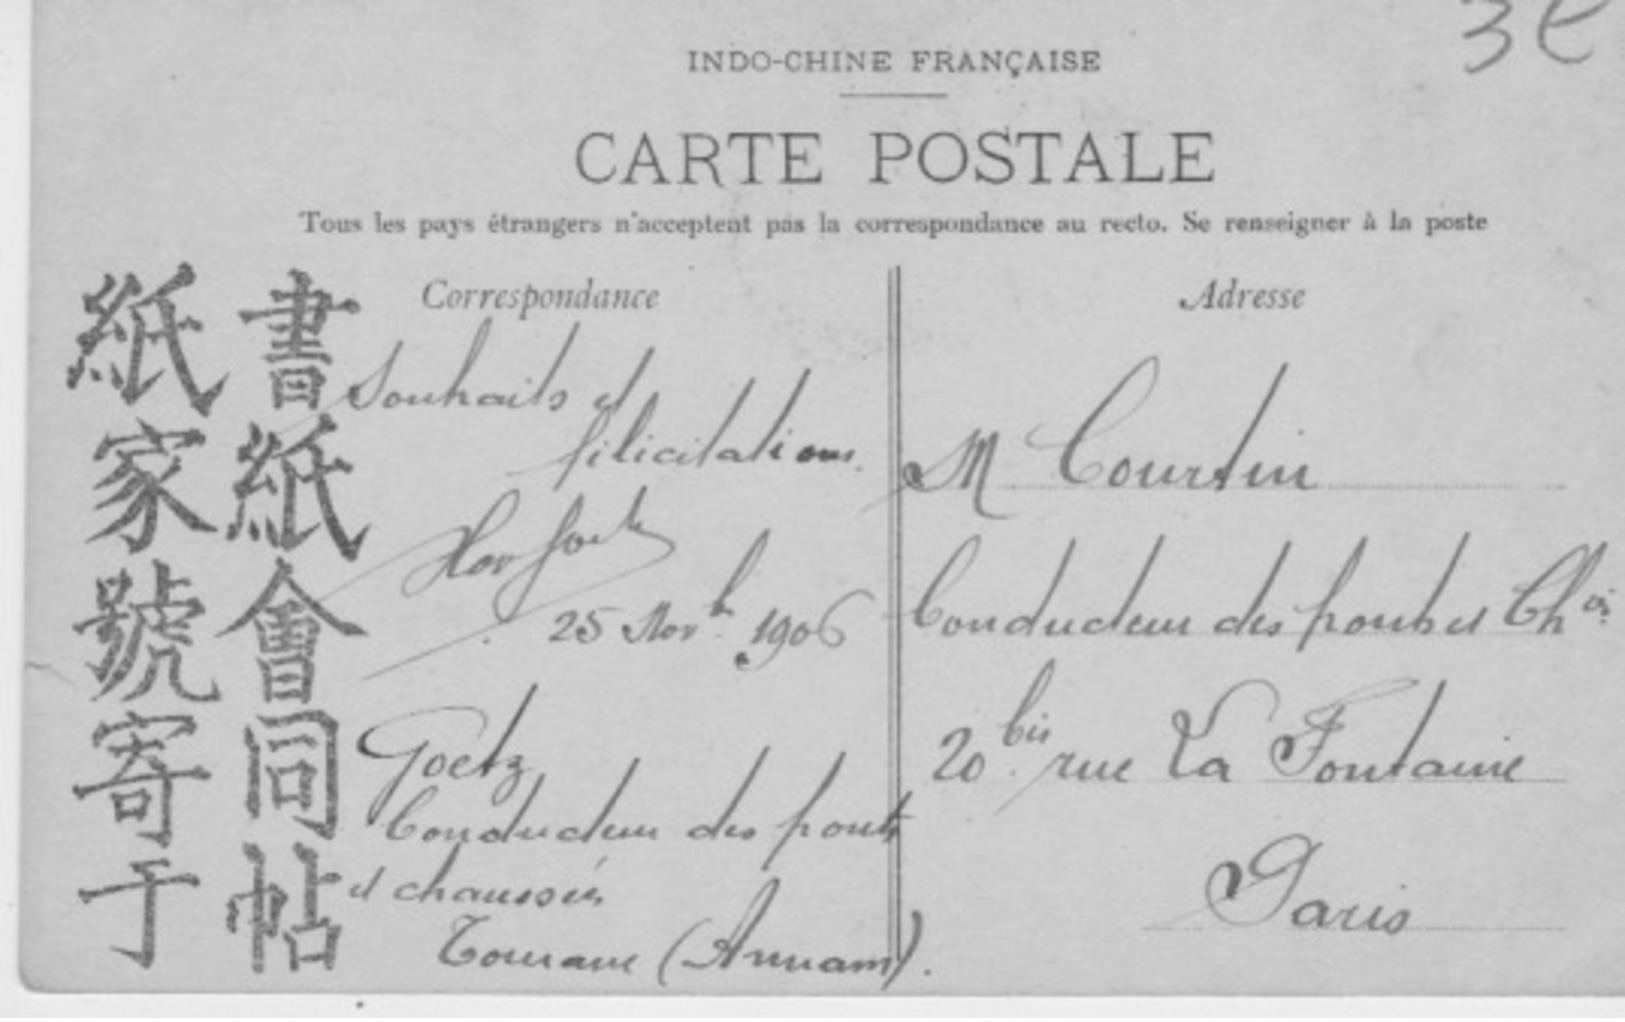 3e
INDO-CHINE FRANÇAISE
CARTE POSTALE
Tous les pays étrangers n'acceptent pas la correspondance au recto. Se renseigner à la poste
書紙會同帖
紙家號寄于
Correspondance
Souhaits et
félicitations.
25 Nov. 1906
Goetz
Conducteur des ponts
et chaussées
Tourane (Annam).
Adresse
M Courtin
Conducteur des ponts et Ch
20 bis rue La Fontaine
Paris